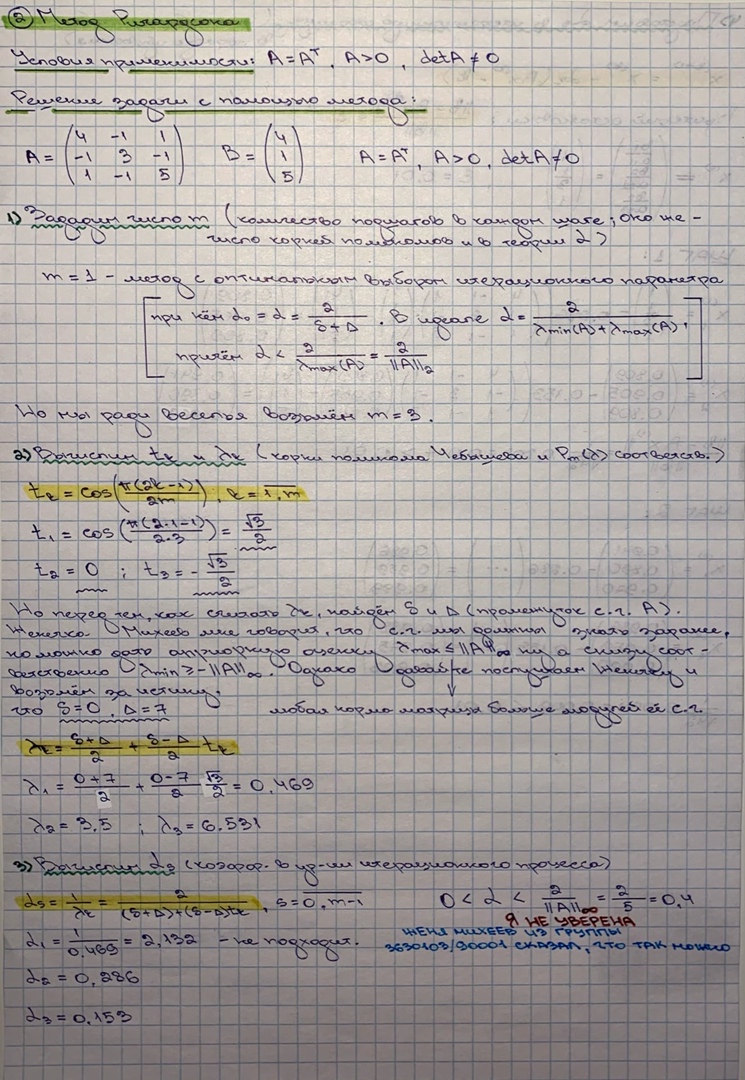 ② Метод Ричардсона
Условия применимости: A = Aᵀ, A > 0, det A ≠ 0
Решение задачи с помощью метода:
A = (4 -1 1; -1 3 -1; 1 -1 5) B = (4; 1; 5) A = Aᵀ, A > 0, det A ≠ 0
1) Зададим число m (количество подшагов в каждом шаге; оно же -
число корней полиномов и в теории α)
m = 1 - метод с оптимальным выбором итерационного параметра
[при нём α₀ = α = 2/(δ+Δ). В идеале α = 2/(λmin(A)+λmax(A)),
причём α < 2/λmax(A) = 2/||A||₂]
Но мы ради веселья возьмём m = 3.
2) Вычислим tₖ и λₖ (корни полинома Чебышева и Pₘ(λ) соответств.)
tₖ = cos(π(2k-1)/2m), k = 1,m
t₁ = cos(π(2·1-1)/2·3) = √3/2
t₂ = 0 ; t₃ = -√3/2
Но перед тем, как считать λₖ, найдём δ и Δ (промежуток с.г. A).
Женечка Михеев мне говорит, что с.г. мы должны знать заранее,
но можно дать априорную оценку λmax ≤ ||A||∞ ну а снизу соот-
ветственно λmin ≥ -||A||∞. Однако давайте послушаем Женечку и
возьмём за истину,
что δ = 0, Δ = 7 любая норма матрицы больше модулей её с.г.
λₖ = (δ+Δ)/2 + (δ-Δ)/2 tₖ
λ₁ = (0+7)/2 + (0-7)/2 √3/2 = 0,469
λ₂ = 3,5 ; λ₃ = 6,531
3) Вычислим αs (коэфф. в ур-ии итерационного процесса)
αs = 1/λₖ = 2/((δ+Δ)+(δ-Δ)tₖ), s = 0,m-1 0 < α < 2/||A||∞ = 2/5 = 0,4
Я НЕ УВЕРЕНА
α₁ = 1/0,469 = 2,132 - не подходит. ЖЕНЯ МИХЕЕВ ИЗ ГРУППЫ
3630103/90001 СКАЗАЛ, ЧТО ТАК МОЖНО
α₂ = 0,286
α₃ = 0,153